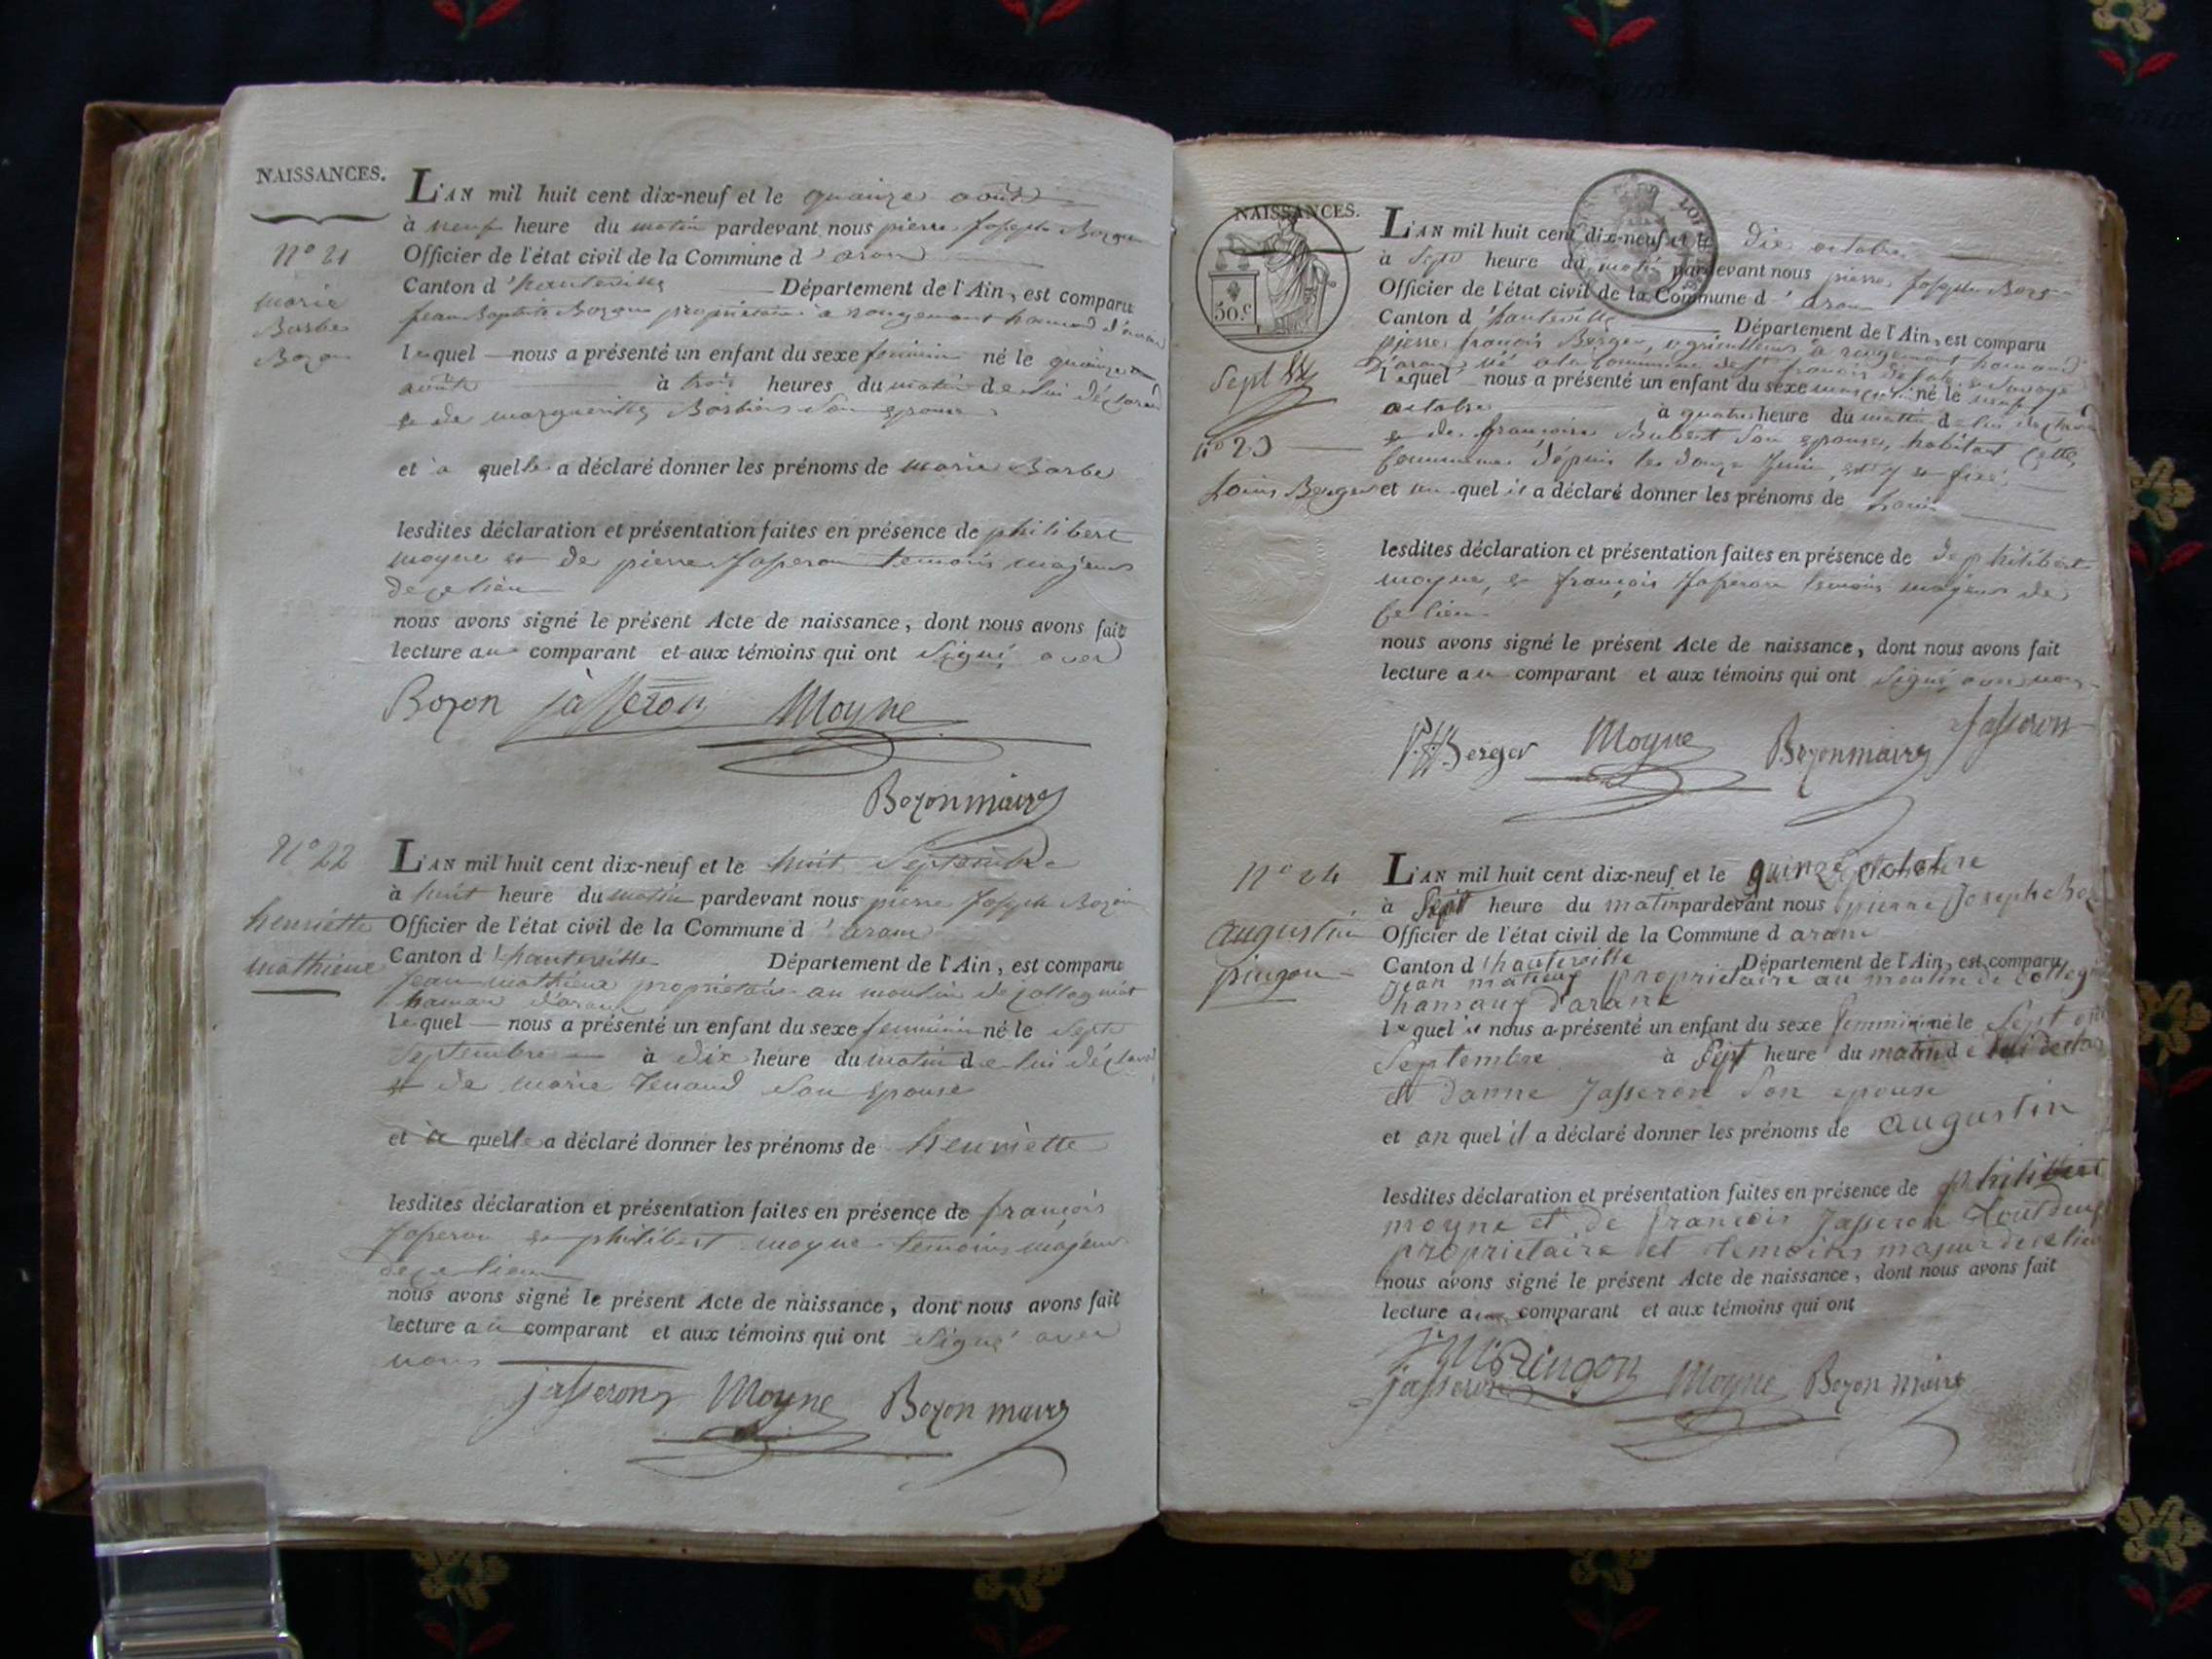 NAISSANCES.
N° 21
marie
Barbe
Bozon
L'AN mil huit cent dix-neuf et le quinze août
à neuf heure du matin pardevant nous pierre Joseph Bozon
Officier de l'état civil de la Commune d'aran
Canton d'hauteville Département de l'Ain, est comparu
jean Baptiste Bozon propriétaire à rougemont hameau d'aran
lequel nous a présenté un enfant du sexe feminin né le quinze
août à trois heures du matin de lui déclarant
et de margueritte son epouse
et à quelle a déclaré donner les prénoms de marie Barbe
lesdites déclaration et présentation faites en présence de philibert
moyne et de pierre Jasseron temoins majeurs
de ce lieu
nous avons signé le présent Acte de naissance, dont nous avons fait
lecture au comparant et aux témoins qui ont signé avec
Bozon jasseron Moyne
Bozon maire
N° 22
henriette
mathieux
L'AN mil huit cent dix-neuf et le huit Septembre
à huit heure du matin pardevant nous pierre Joseph Bozon
Officier de l'état civil de la Commune d'aran
Canton d'hauteville Département de l'Ain, est comparu
jean mathieux propriétaire au moulin de
hamau d'aran
lequel nous a présenté un enfant du sexe feminin né le Sept
Septembre à dix heure du matin de lui déclarant
et de marie Tenand son epouse
et à quelle a déclaré donner les prénoms de henriette
lesdites déclaration et présentation faites en présence de françois
Jasseron et philibert moyne temoins majeurs
de ce lieu
nous avons signé le présent Acte de naissance, dont nous avons fait
lecture au comparant et aux témoins qui ont signé avec
nous
jasseron Moyne Bozon maire
NAISSANCES.
50.c
Sept
n° 23
Louis Berger
L'AN mil huit cent dix-neuf et le dix octobre
à Sept heure du matin pardevant nous pierre Joseph Bozon
Officier de l'état civil de la Commune d'aran
Canton d'hauteville Département de l'Ain, est comparu
pierre françois Berger, agriculteur à rougemont hameau
d'aran, né a la Commune de st françois de Sales Savoye
lequel nous a présenté un enfant du sexe masculin né le neuf
octobre à quatre heure du matin de lui déclarant
et de françoise son epouse, habitant cette
Commune depuis le douze Juin, et y est fixé
et au quel il a déclaré donner les prénoms de Louis
lesdites déclaration et présentation faites en présence de de philibert
moyne, et françois Jasseron temoins majeurs de
ce lieu
nous avons signé le présent Acte de naissance, dont nous avons fait
lecture au comparant et aux témoins qui ont signé avec nous
Berger Moyne Bozon maire Jasseron
N° 24
augustin
pingon
L'AN mil huit cent dix-neuf et le quinze octobre
à Sept heure du matin pardevant nous pierre Joseph Boz
Officier de l'état civil de la Commune d aran
Canton d'hauteville Département de l'Ain, est comparu
jean propriétaire au moulin de
hamaux d'arane
lequel il nous a présenté un enfant du sexe femminin né le Sept
Septembre à Sept heure du matin de lui
et danne Jasseron Son epouse
et au quel il a déclaré donner les prénoms de augustin
lesdites déclaration et présentation faites en présence de philibert
moyne et de francois Jasseron tout deux
proprietaire et temoins majeur de ce lieu
nous avons signé le présent Acte de naissance, dont nous avons fait
lecture au comparant et aux témoins qui ont
Pingon
jasseron Moyne Bozon maire